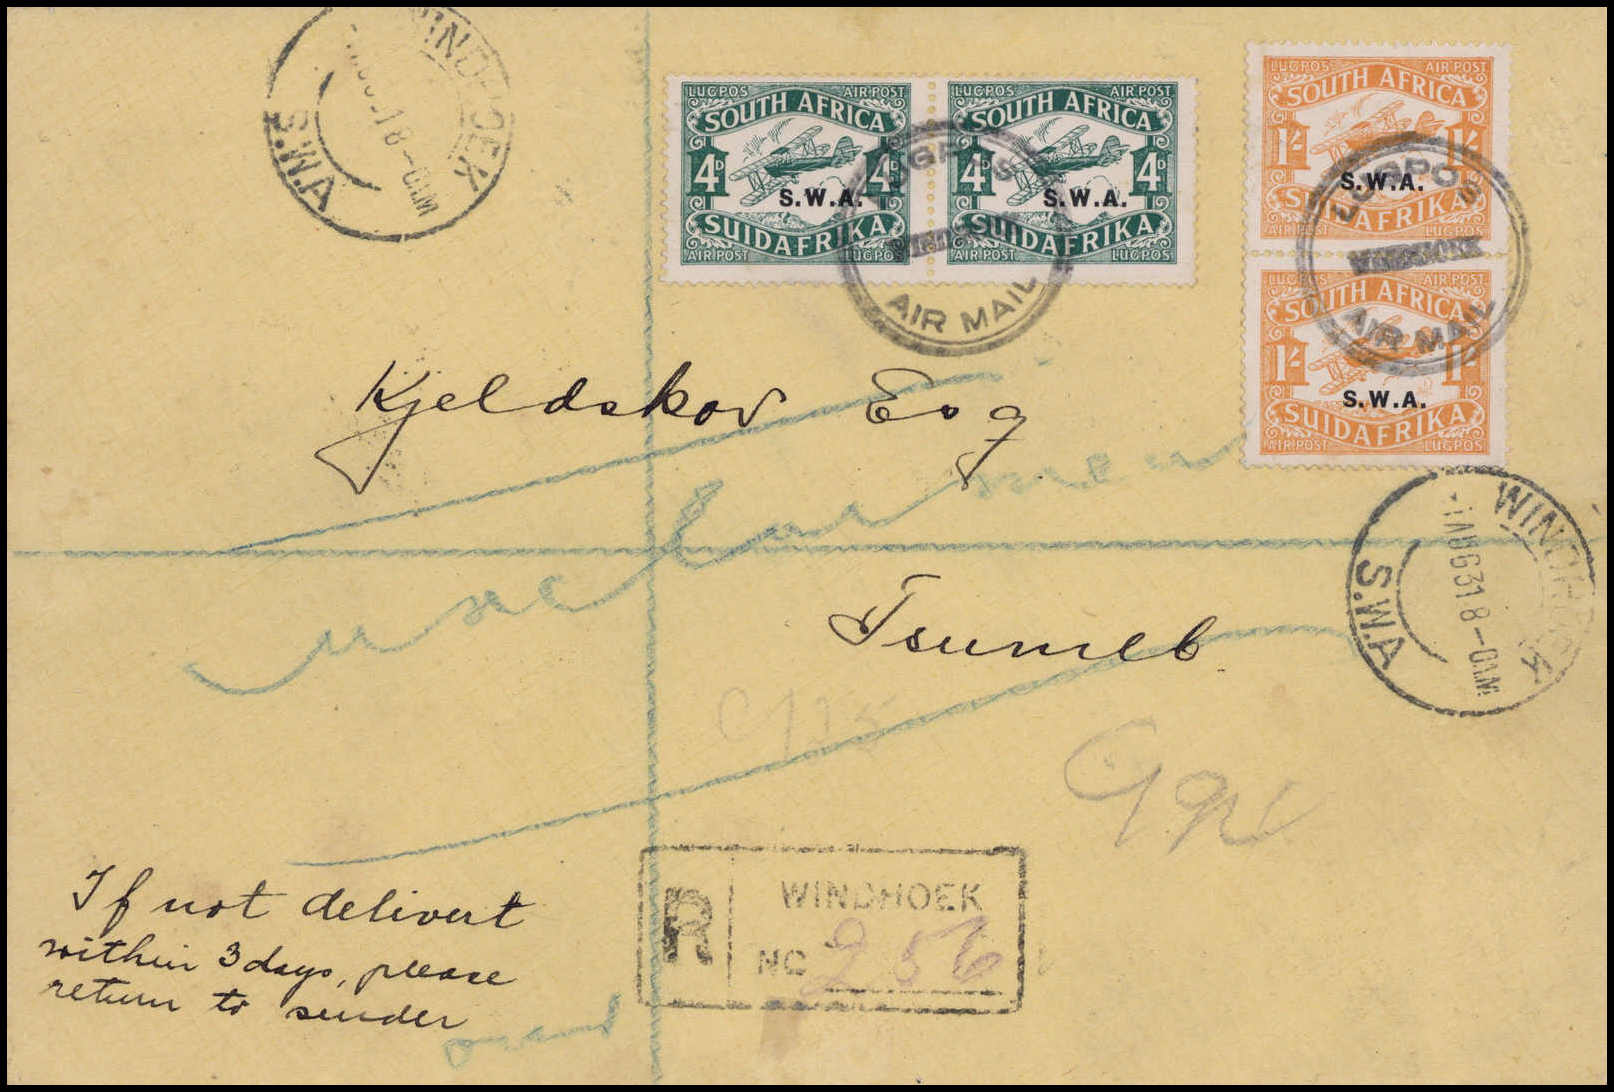 WINDHOEK
S.W.A
LUGPOS AIR POST
SOUTH AFRICA
4D 4D
S.W.A.
SUIDAFRIKA
AIR POST LUGPOS
LUGPOS AIR POST
SOUTH AFRICA
4D 4D
S.W.A.
SUIDAFRIKA
AIR POST LUGPOS
LUGPOS
WINDHOEK
AIR MAIL
LUGPOS AIR POST
SOUTH AFRICA
1/- 1/-
S.W.A.
SUIDAFRIKA
LUGPOS
WINDHOEK
AIR MAIL
LUGPOS AIR POST
SOUTH AFRICA
1/- 1/-
S.W.A.
SUIDAFRIKA
AIR POST LUGPOS
Kjeldskov Esq
Tsumeb
WINDHOEK
1 AUG 31 8-0 AM
S.W.A
R WINDHOEK
NO 256
If not delivert
within 3 days, please
return to sender